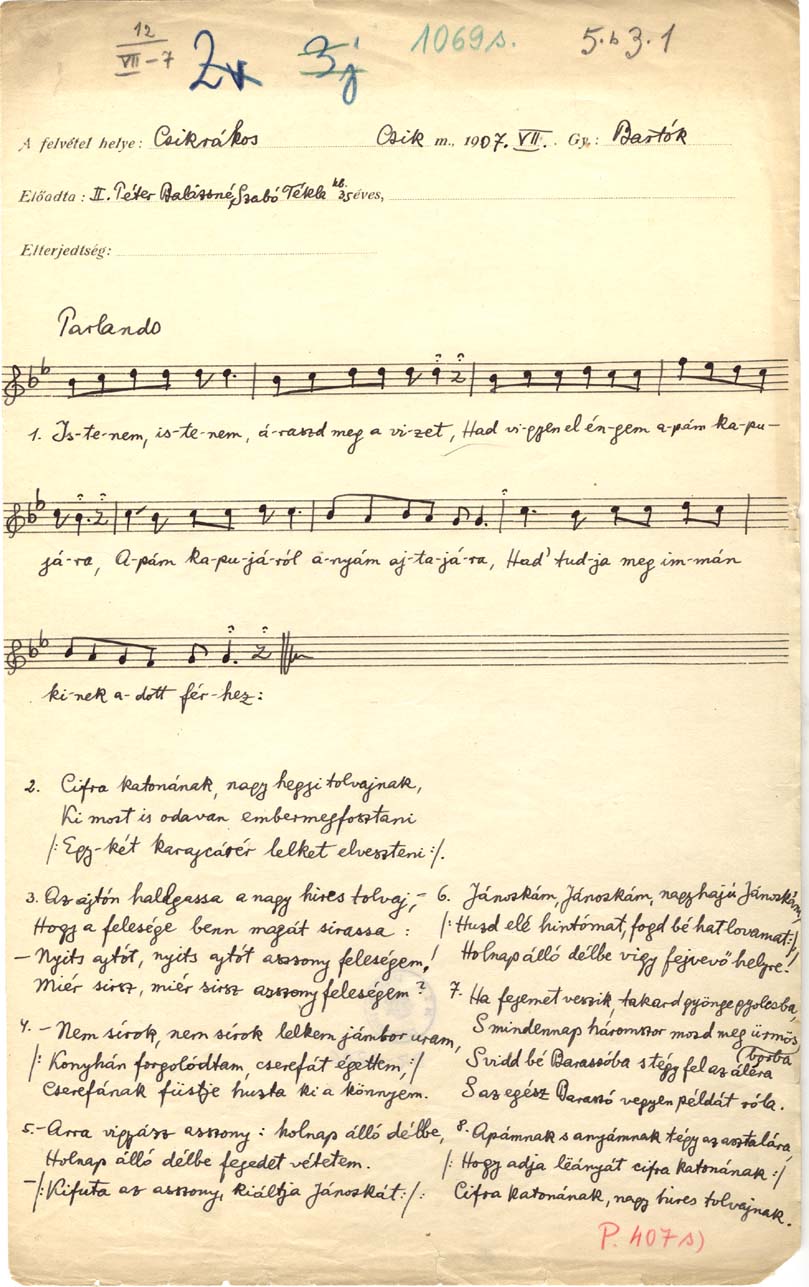 12
VII - 7
2v 3j 1069s. 5.b 3.1
A felvétel helye: Csikrákos Csik m., 1907. VII. Gy.: Bartók
Előadta: II. Péter Balázsné, Szabó Tékla kb. 35 éves,
Elterjedtség:
Parlando
1. Is-te-nem, is-te-nem, á-raszd meg a vi-zet, Had vi-gyen el én-gem a-pám ka-pu-
já-ra, A-pám ka-pu-já-ról a-nyám aj-ta-já-ra, Had' tud-ja meg im-mán
ki-nek a-dott fér-hez:
2. Cifra katonának, nagy hegyi tolvajnak,
Ki most is odavan embermegfosztani
/: Egy-két karajcárér lelket elveszteni :/.
3. Az ajtón hallgassa a nagy hires tolvaj,-
Hogy a felesége benn magát sirassa :
- Nyits ajtót, nyits ajtót asszony feleségem!
Miér sirsz, miér sirsz asszony feleségem?
4. - Nem sírok, nem sírok lelkem jámbor uram,
/: Konyhán forgolódtam, cserefát égettem, :/
Cserefának füstje huzta ki a könnyem.
5. - Arra vigyázz asszony : holnap álló délbe,
Holnap álló délbe fejedet vétetem.
- /: Kifuta az asszony, kiáltja Jánoskát :/ :
6. Jánoskám, Jánoskám, nagyhajú Jánoskám,
/: Huzd elé hintómat, fogd bé hat lovamat :/
Holnap álló délbe vigy fejvevő helyre!
7. Ha fejemet veszik, takard gyönge gyolcsba,
S mindennap háromszor mozd meg ürmös
borba
S vidd bé Barassóba s tégy fel az áléra
S az egész Barassó vegyen példát róla.
8. Apámnak s anyámnak tégy az asztalára,
/: Hogy adja léányát cifra katonának :/
Cifra katonának, nagy hires tolvajnak.
P. 407 s)